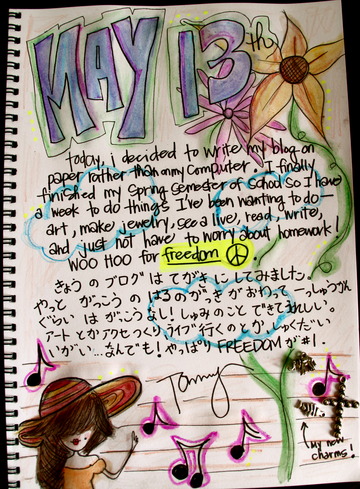 MAY 13th
today, i decided to write my blog on
paper rather than on my computer. I finally
finished my Spring Semester of School so I have
a week to do things I've been wanting to do -
art, make jewelry, see a live, read, write,
and just not have to worry about homework!
WOO HOO for freedom
きょうの ブログ は てがき に してみました。
やっと がっこう の はるのがっき が おわって 一っしゅうかん
ぐらい は がっこう なし! しゅみのこと できてうれしい。
アート とか アクセ つくり、ライブ 行くの とか、しゅくだい
いがい...なんでも! やっぱり FREEDOM が #1.
Tammy
My new
charms!